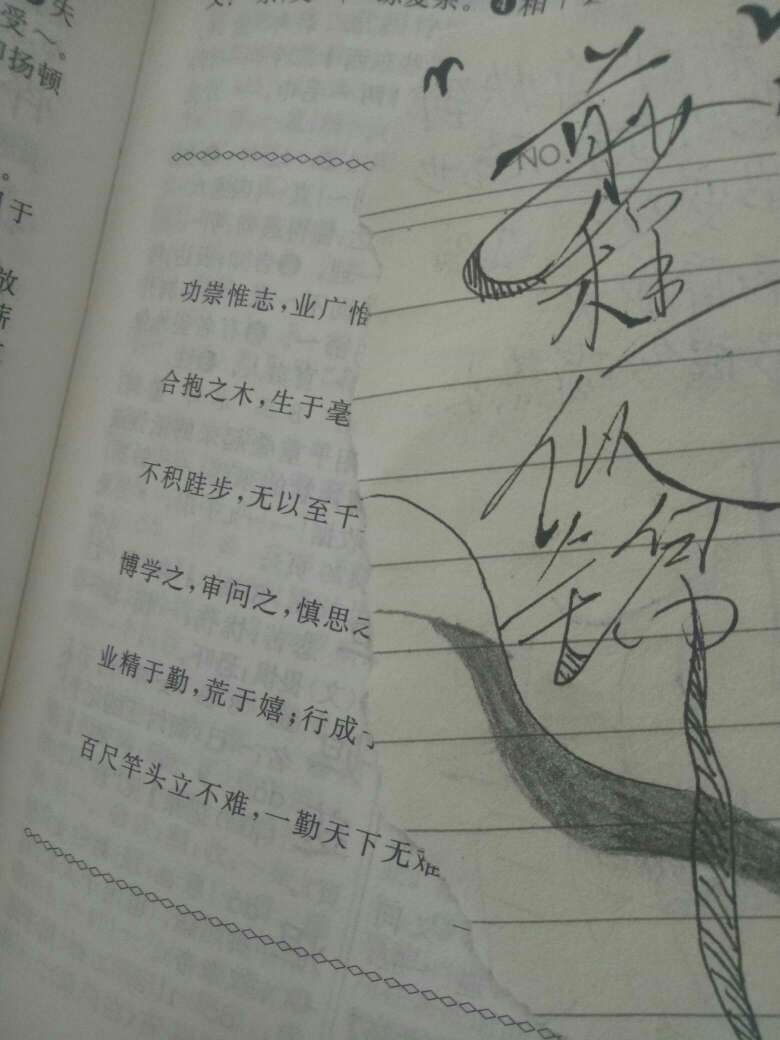 失
受～。
扬顿
。
于
放
❹相
功崇惟志，业广惟
合抱之木，生于毫
不积跬步，无以至千
博学之，审问之，慎思之
业精于勤，荒于嬉；行成于
百尺竿头立不难，一勤天下无难
NO.
前
程
似
锦